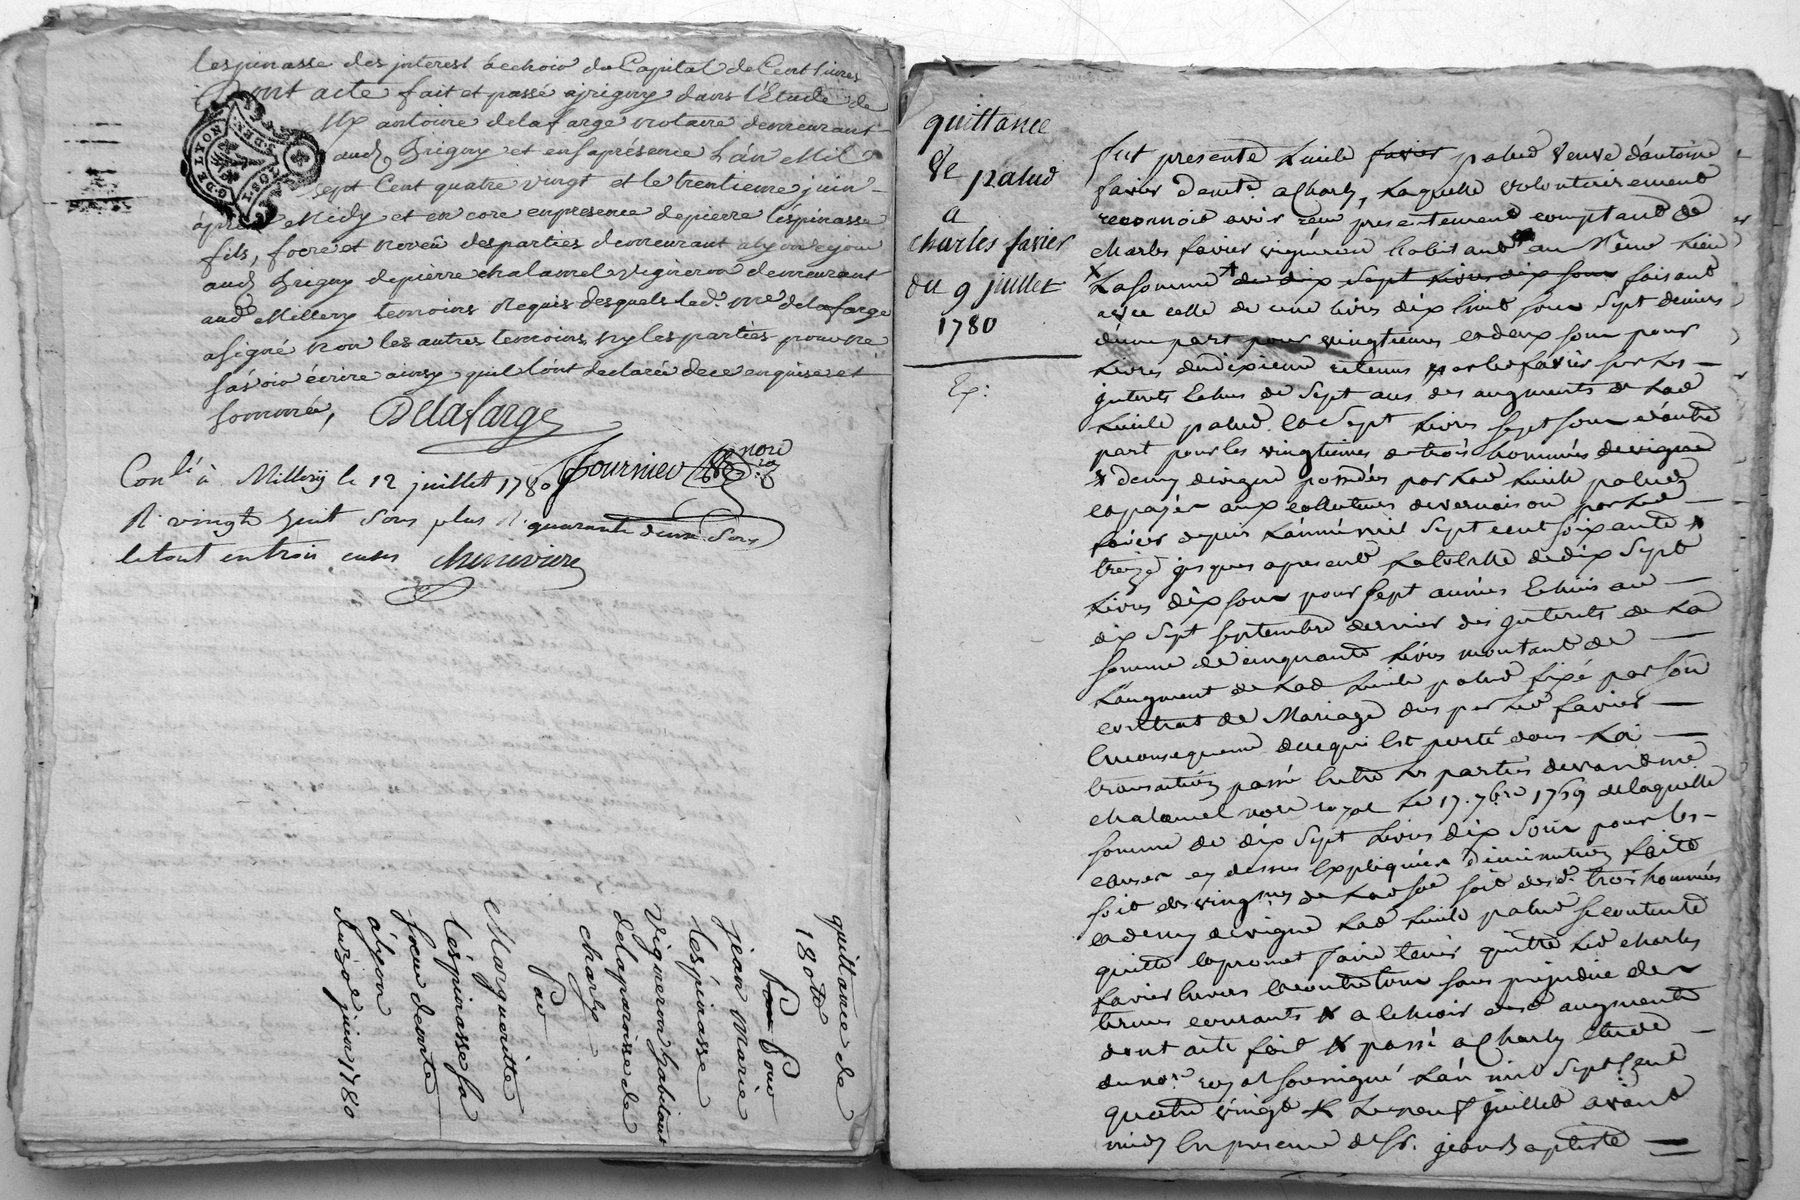 lespinasse des jnterest àechoir du Capital de Cent livres
Dont acte fait et passé a jrigny dans l'Etude de
Me antoine delafarge notaire demeurant
aud jrigny et en sa présence L'an Mil
sept Cent quatre vingt et le trentieme juin
àprès Midy et encore en presence de pierre léspinasse
fils, frere et neveu des parties demeurant a lyon
aud jrigny de pierre chalamel vigneron demeurant
aud Millery temoins Requis desquels led. me delafarge
a signé non les autres temoins ny les parties pour ne
sàvoir écrire ainsy quil l'ont declaré de ce enquise et
sommée, Delafarge
Con.lé à Millery le 12 juillet 1780 fournier nore
R. vingt huit sous plus R. quarante deux sous
le tout en trois cases cheneviere
G. DE LYON
quittance de
180lt
Pour
jean Marie
léspinasse
Vigneron habitant
de la paroisse de
charly
Par
Marguerite
léspinasse sa
soeur demte
a lyon
du 30e juin 1780
quittance
Ve palud
a
charles favier
du 9 juillet
1780
Ex:
fut presente favier palud veuve d'antoine
favier demte a Charly, Laquelle volontairement
reconnoit avoir reçu presentement comptant de
charles favier vigneron habitant au même Lieu
La somme de dix sept livres dix sous faisant
avec celle de une livres dix huit sous sept deniers
d'une part pour vingtiemes et deux sous pour
Livres du dixieme retenus par led favier sur les
jnterets Echus de sept ans des augments de Lad
palud et sept livres sept sous d'autre
part pour les vingtiemes de trois hommées de vigne
& demy de vigne possedés par Lad palud
et payés aux collecteurs de vernaison par Led
favier depuis L'année mil sept cent soixante &
treize jusques a present La totalle de dix sept
Livres dix sous pour sept années Echües au
dix sept septembre dernier des jnterets de La
somme de cinquante Livres montant de
L'augment de Lad palud fixé par son
contrat de Mariage dus par Led favier
En consequence de ce qui Est porté dans La
transaction passée Entre les parties devant me
chalamel nore royal Le 17. 7bre 1769 de laquelle
somme de dix sept Livres dix sous pour les
causes cy dessus Expliquées diminution faite
soit des vingmes de Lad soe soit desd. trois hommées
et demy de vigne Lad palud se contente
quitte et promet faire tenir quitte Led charles
favier Envers et contre tous sans prejudice des
termes courants & a Echoir dud augment
dont acte fait & passé a Charly Etude
du nore royal soussigné L'an mil sept cent
quatre vingt & Le neuf juillet avant
midy En presence de Sr. jean Baptiste